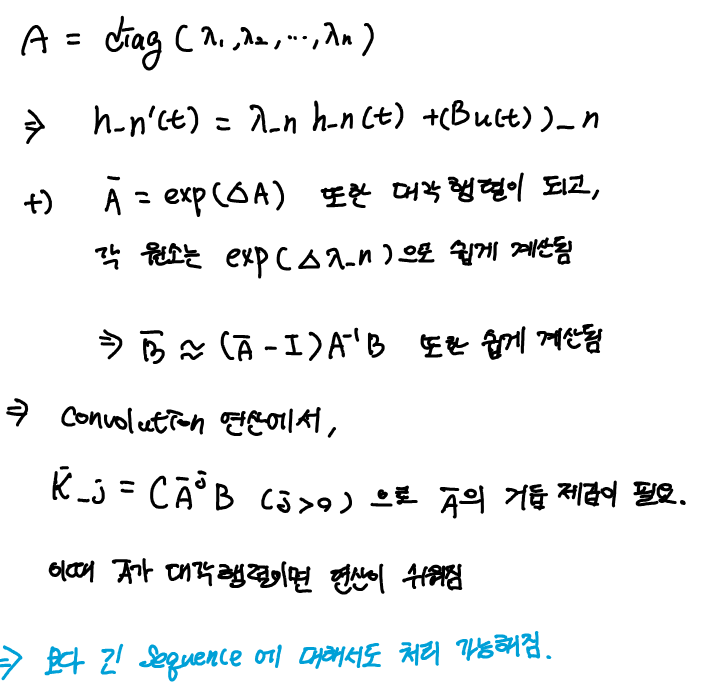 A = diag(λ₁, λ₂, ..., λn)
⇒ h_n'(t) = λ_n h_n(t) + (Bu(t))_n
+) Ā = exp(ΔA) 또한 대각 행렬이 되고,
각 원소는 exp(Δλ_n)으로 쉽게 계산됨
⇒ B̄ ≈ (Ā - I)A⁻¹B 또한 쉽게 계산됨
⇒ Convolution 연산에서,
K̄_j = CĀʲB (j>0)으로 Ā의 거듭 제곱이 필요.
이때 Ā가 대각행렬이면 연산이 쉬워짐
⇒ 보다 긴 Sequence에 대해서도 처리 가능해짐.